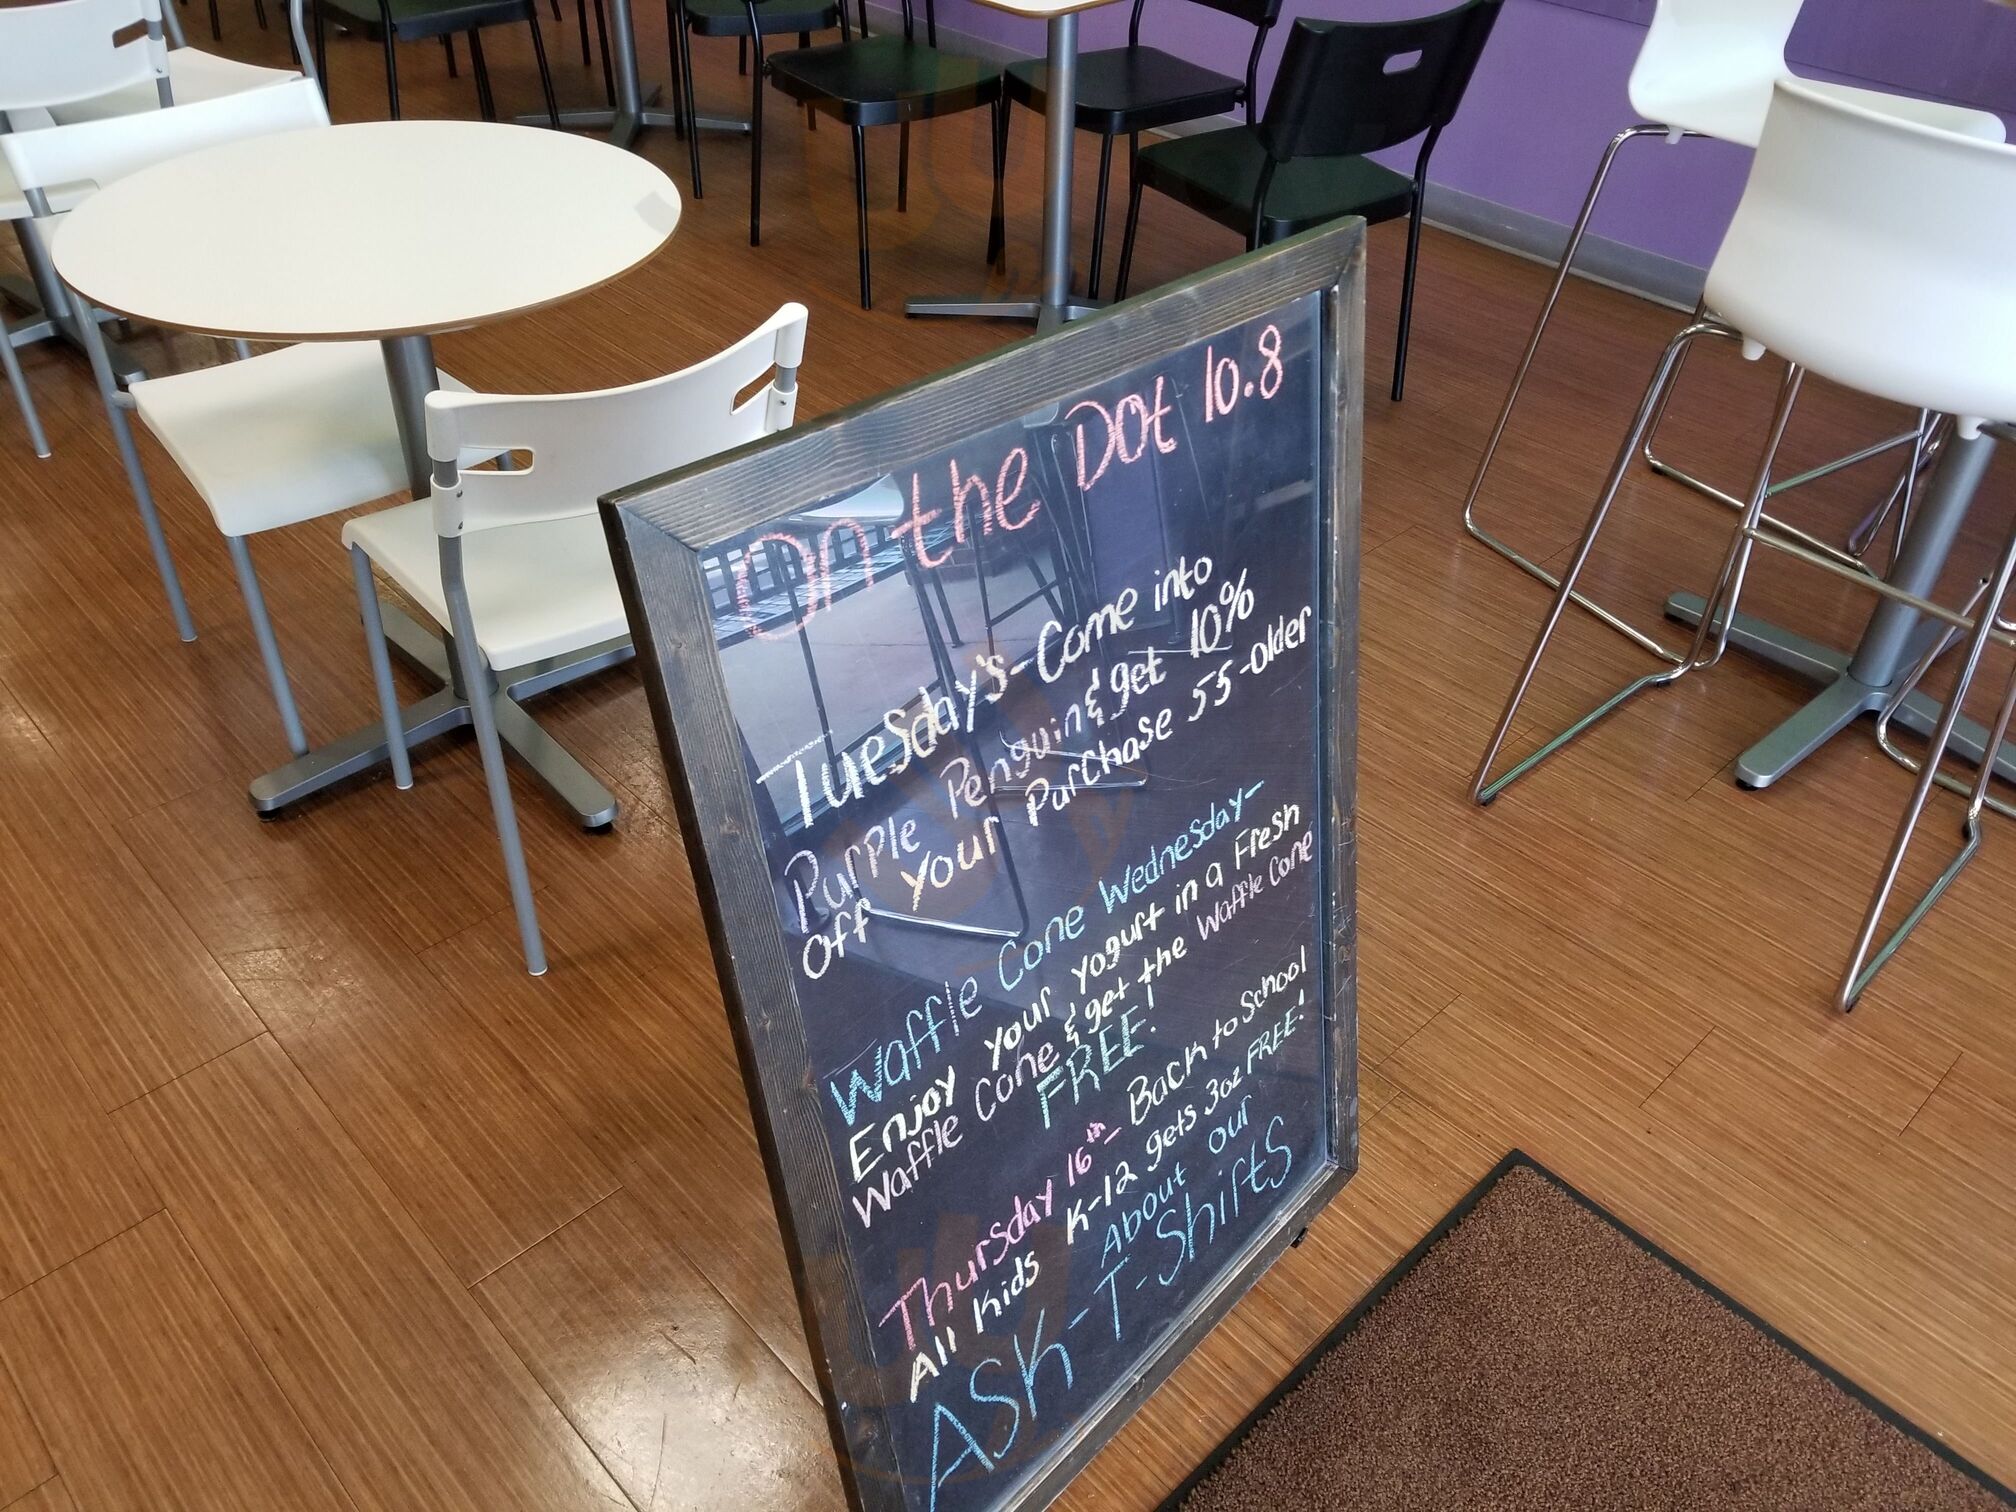 On the Dot 10.8
Tuesday's - Come into
Purple Penguin & get 10%
Off your Purchase 55-older
Waffle Cone Wednesday -
Enjoy your yogurt in a Fresh
Waffle Cone & get the Waffle Cone
FREE!
Thursday 16th - Back to School
All Kids K-12 gets 3oz FREE!
About our
ASK-T-Shifts